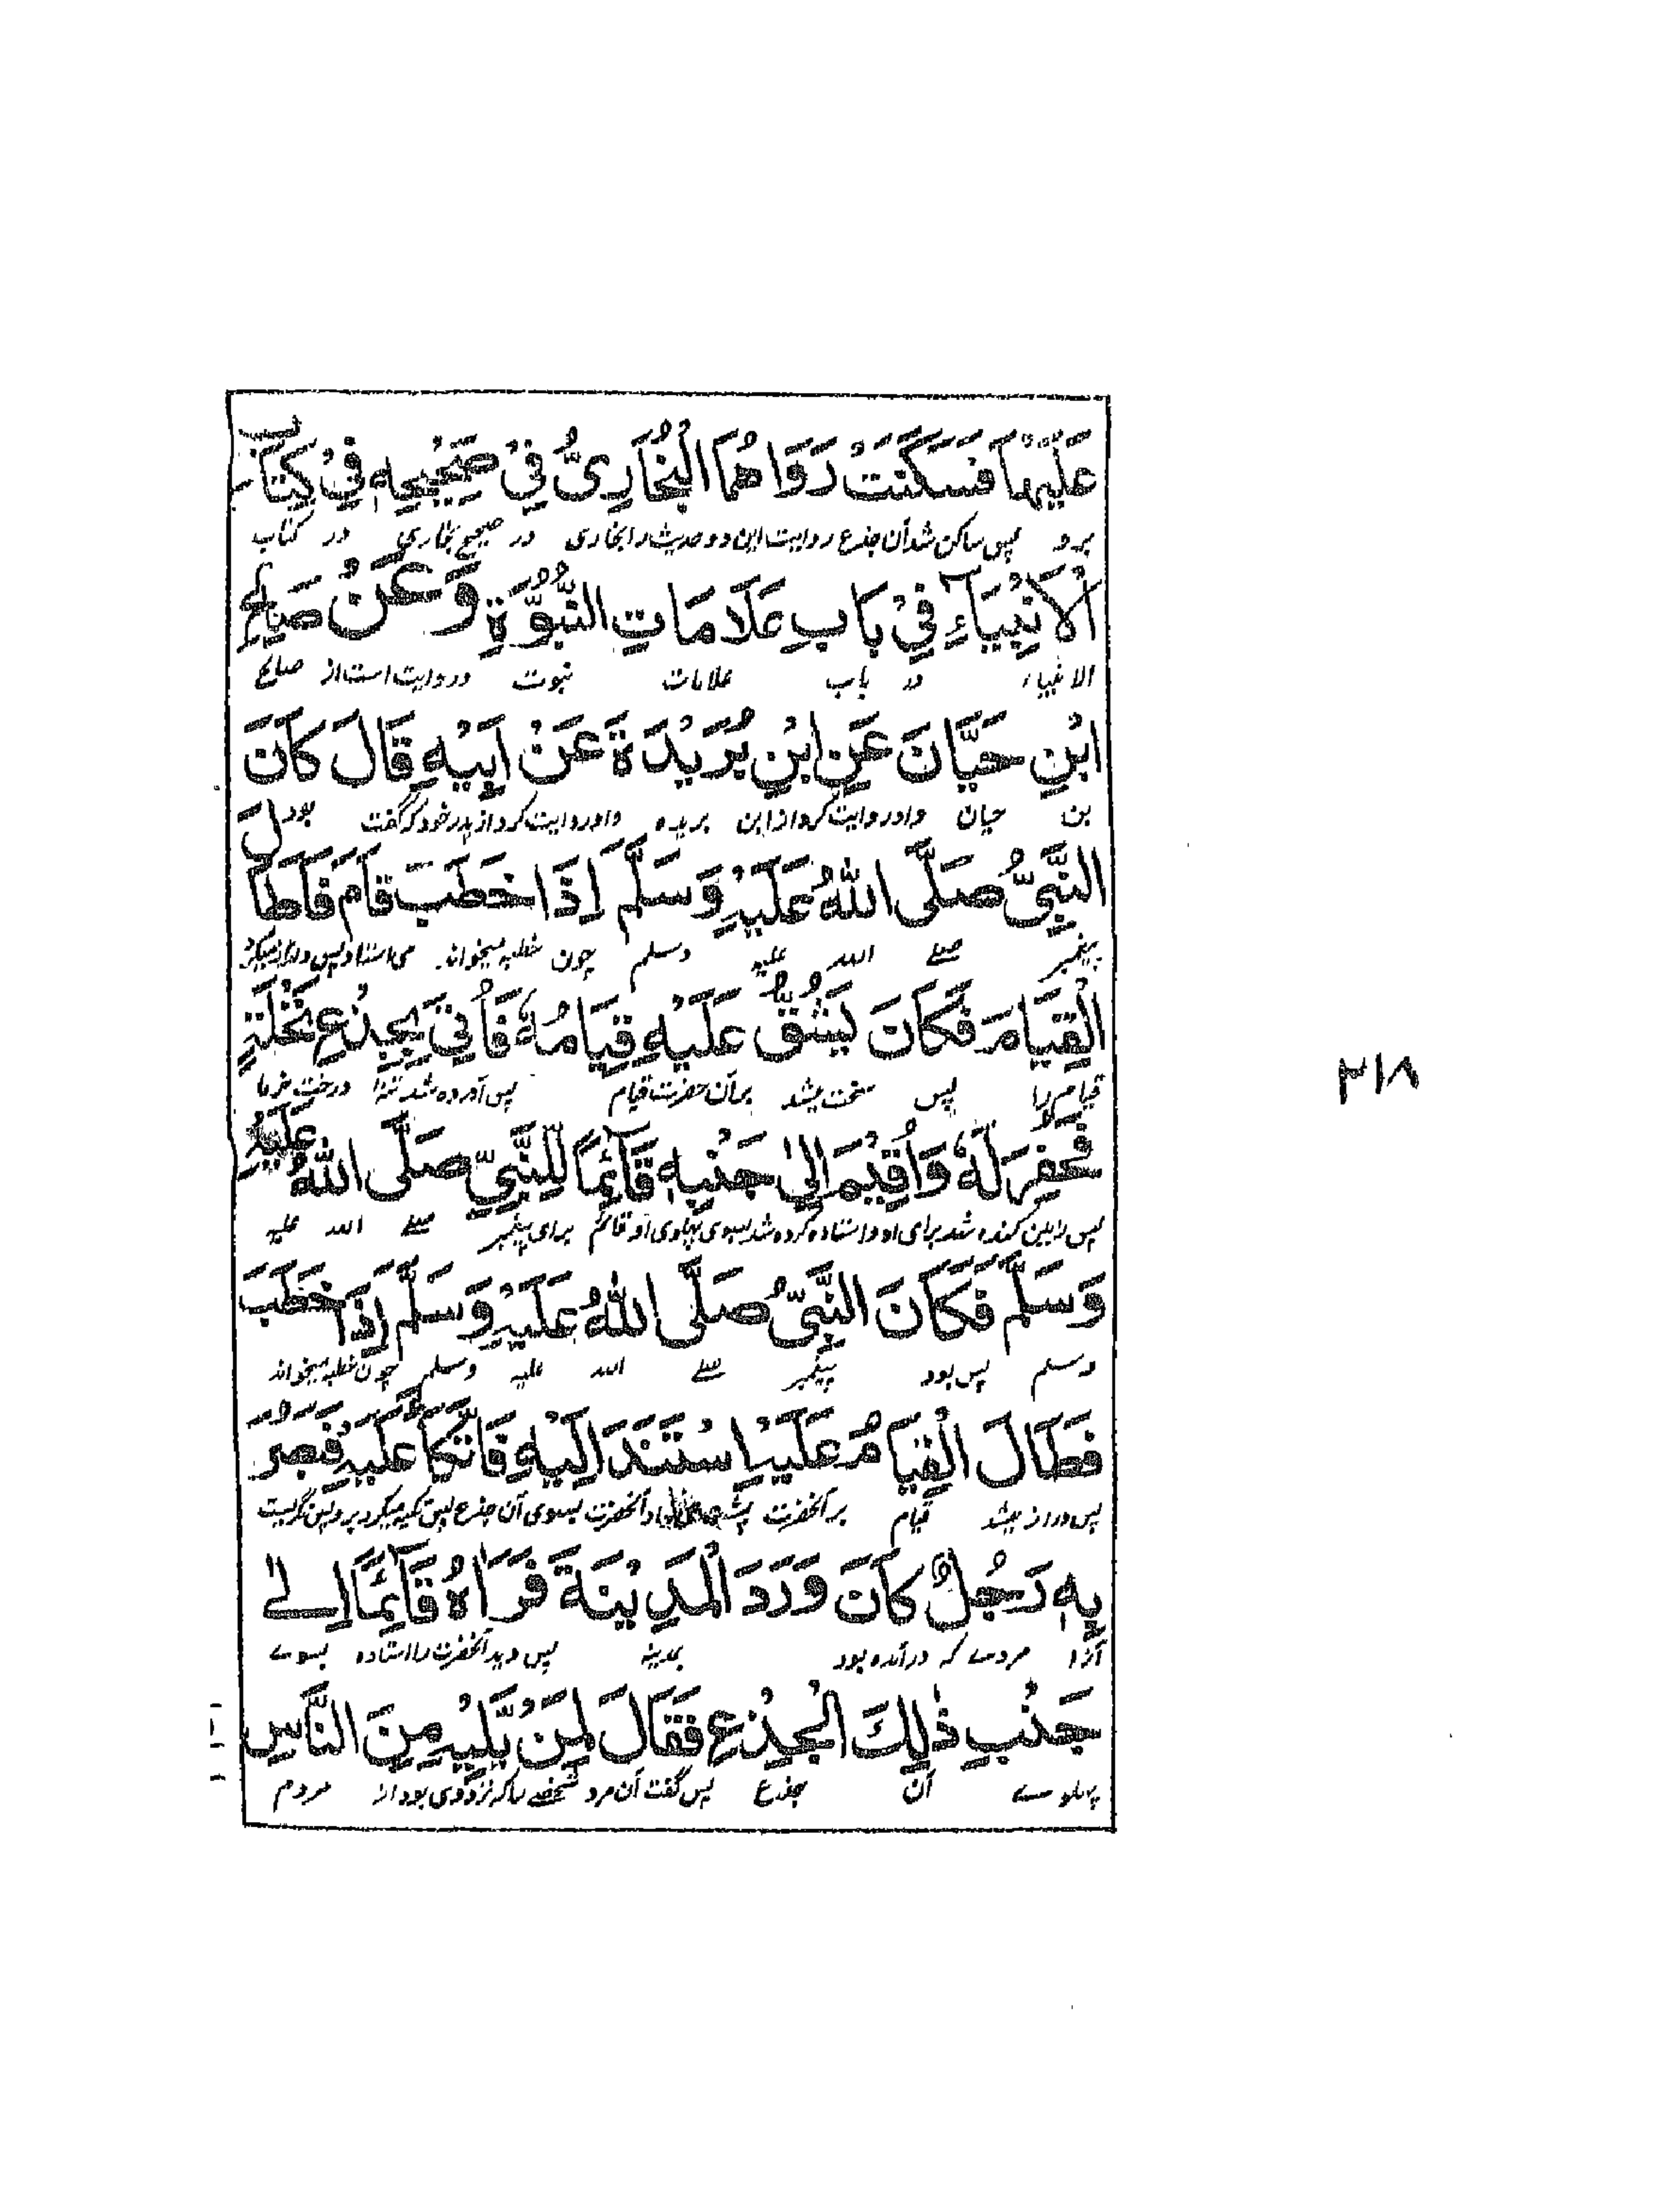 عَلَيْهَا فَسَكَنَتْ رَوَاهُمَا الْبُخَارِيُّ فِيْ صَحِيْحِهٖ فِيْ كِتَابِ
برو پس ساکن شد آن جذع روایت این دو حدیث را بخاری در صحیح بخاری در کتاب
الْاَنْبِيَآءِ فِيْ بَابِ عَلَامَاتِ النُّبُوَّةِ وَعَنْ صَالِحِ
الانبیاء در باب علامات نبوت و روایت است از صالح
ابْنِ حَيَّانَ عَنِ ابْنِ بُرَيْدَةَ عَنْ اَبِيْهِ قَالَ كَانَ
بن حیان و او روایت کرد از ابن بریده و او روایت کرد از پدر خود که گفت بود
النَّبِيُّ صَلَّى اللّٰهُ عَلَيْهِ وَسَلَّمَ اِذَا خَطَبَ قَامَ فَاَطَالَ
پیغمبر صلے اللہ علیہ وسلم چون خطبه میخواند می استاد پس دراز میکرد
الْقِيَامَ فَكَانَ يَشُقُّ عَلَيْهِ قِيَامُهٗ فَاُتِيَ بِجِذْعِ نَخْلَةٍ
قیام را پس سخت میشد بر آن حضرت قیام پس آورده شد تنه درخت خرما
فَحُفِرَ لَهٗ وَاُقِيْمَ اِلٰى جَنْبِهٖ قَآئِمًا لِلنَّبِيِّ صَلَّى اللّٰهُ عَلَيْهِ
پس زمین کنده شد برای او و استاده کرده شد بسوی پهلوی او قائم برای پیغمبر صلے اللہ علیہ
وَسَلَّمَ فَكَانَ النَّبِيُّ صَلَّى اللّٰهُ عَلَيْهِ وَسَلَّمَ اِذَا خَطَبَ
وسلم پس بود پیغمبر صلے اللہ علیہ وسلم چون خطبه میخواند
فَطَالَ الْقِيَامُ عَلَيْهِ اسْتَنَدَ اِلَيْهِ فَاتَّكَأَ عَلَيْهِ فَبَصُرَ
پس دراز میشد قیام بر آنحضرت آنحضرت بسوی آن جذع پس تکیه میکرد برو پس نگریست
بِهٖ رَجُلٌ كَانَ وَرَدَ الْمَدِيْنَةَ فَرَاٰهُ قَآئِمًا اِلٰے
آنرا مردے کہ در آمده بود بمدینه پس دید آنحضرت را استاده بسوے
جَنْبِ ذٰلِكَ الْجِذْعِ فَقَالَ لِمَنْ يَّلِيْهِ مِنَ النَّاسِ
پهلوے آن جذع پس گفت آن مرد شخصے را که نزد وی بود از مردم
۲۱۸